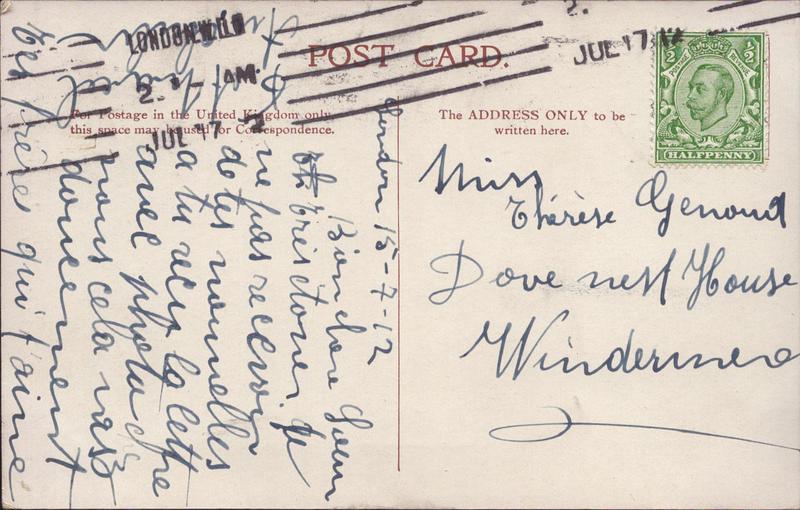 LONDON.W.
2. - AM
JUL 17 12
JUL 17 12
POST CARD.
For Postage in the United Kingdom only
this space may be used for Correspondence.
The ADDRESS ONLY to be
written here.
½ ½
POSTAGE REVENUE
HALFPENNY
Miss
Thérèse Genoud
Dove nest House
Windermere
London 15-7-12
Bien chère Soeur
très étonné de
ne pas recevoir
de tes nouvelles
a tu reçu la lettre
avec photo
nous cela
donc
Tes frères qui t'aime
Marcel